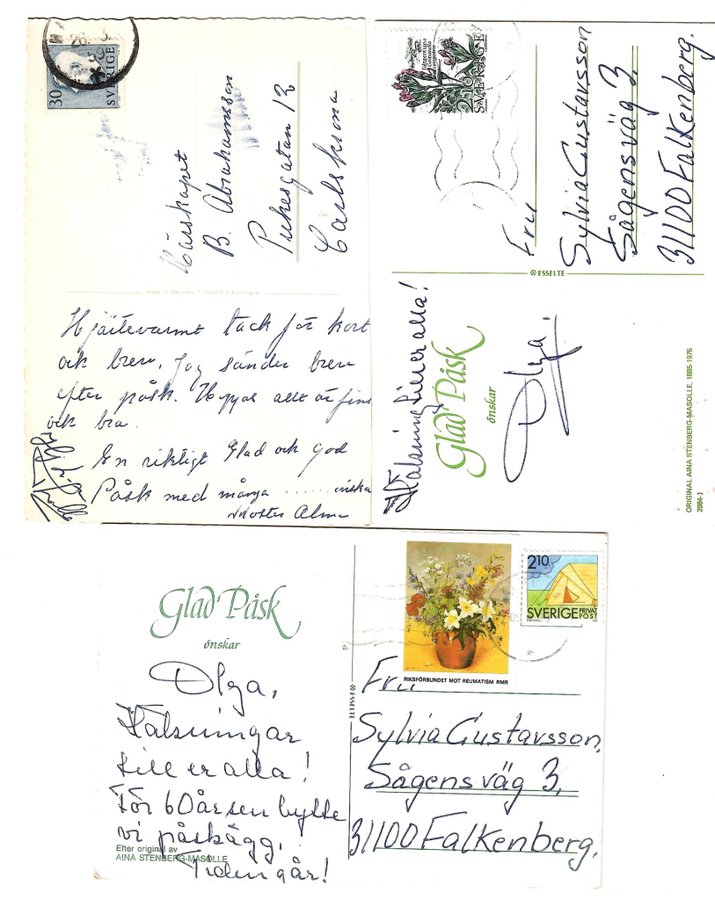 30
SVERIGE
Härskapet
B. Abrahamsson
Pukesgatan 12
Carlskrona
Hjärtevarmt tack för kort
och brev. Jag sänder brev
efter påsk. Hoppas allt är fint
och bra.
En riktigt Glad och god
Påsk med många ...... önska
Moster Alma
SVERIGE
Fru
Sylvia Gustavsson
Sågensväg 3.
31100 Falkenberg.
ESSELTE
Hälsning till er alla!
Glad Påsk
önskar
Olga.
ORIGINAL AINA STENBERG-MASOLLE, 1885-1975
2984-1
Glad Påsk
önskar
Olga,
Hälsningar
till er alla!
För 60 år sen bytte
vi påskägg,
Tiden går!
Efter original av
AINA STENBERG-MASOLLE
ESSELTE
RIKSFÖRBUNDET MOT REUMATISM RMR
2.10
SVERIGE PRIVAT POST
Fru
Sylvia Gustavsson,
Sågens väg 3.
31100 Falkenberg.